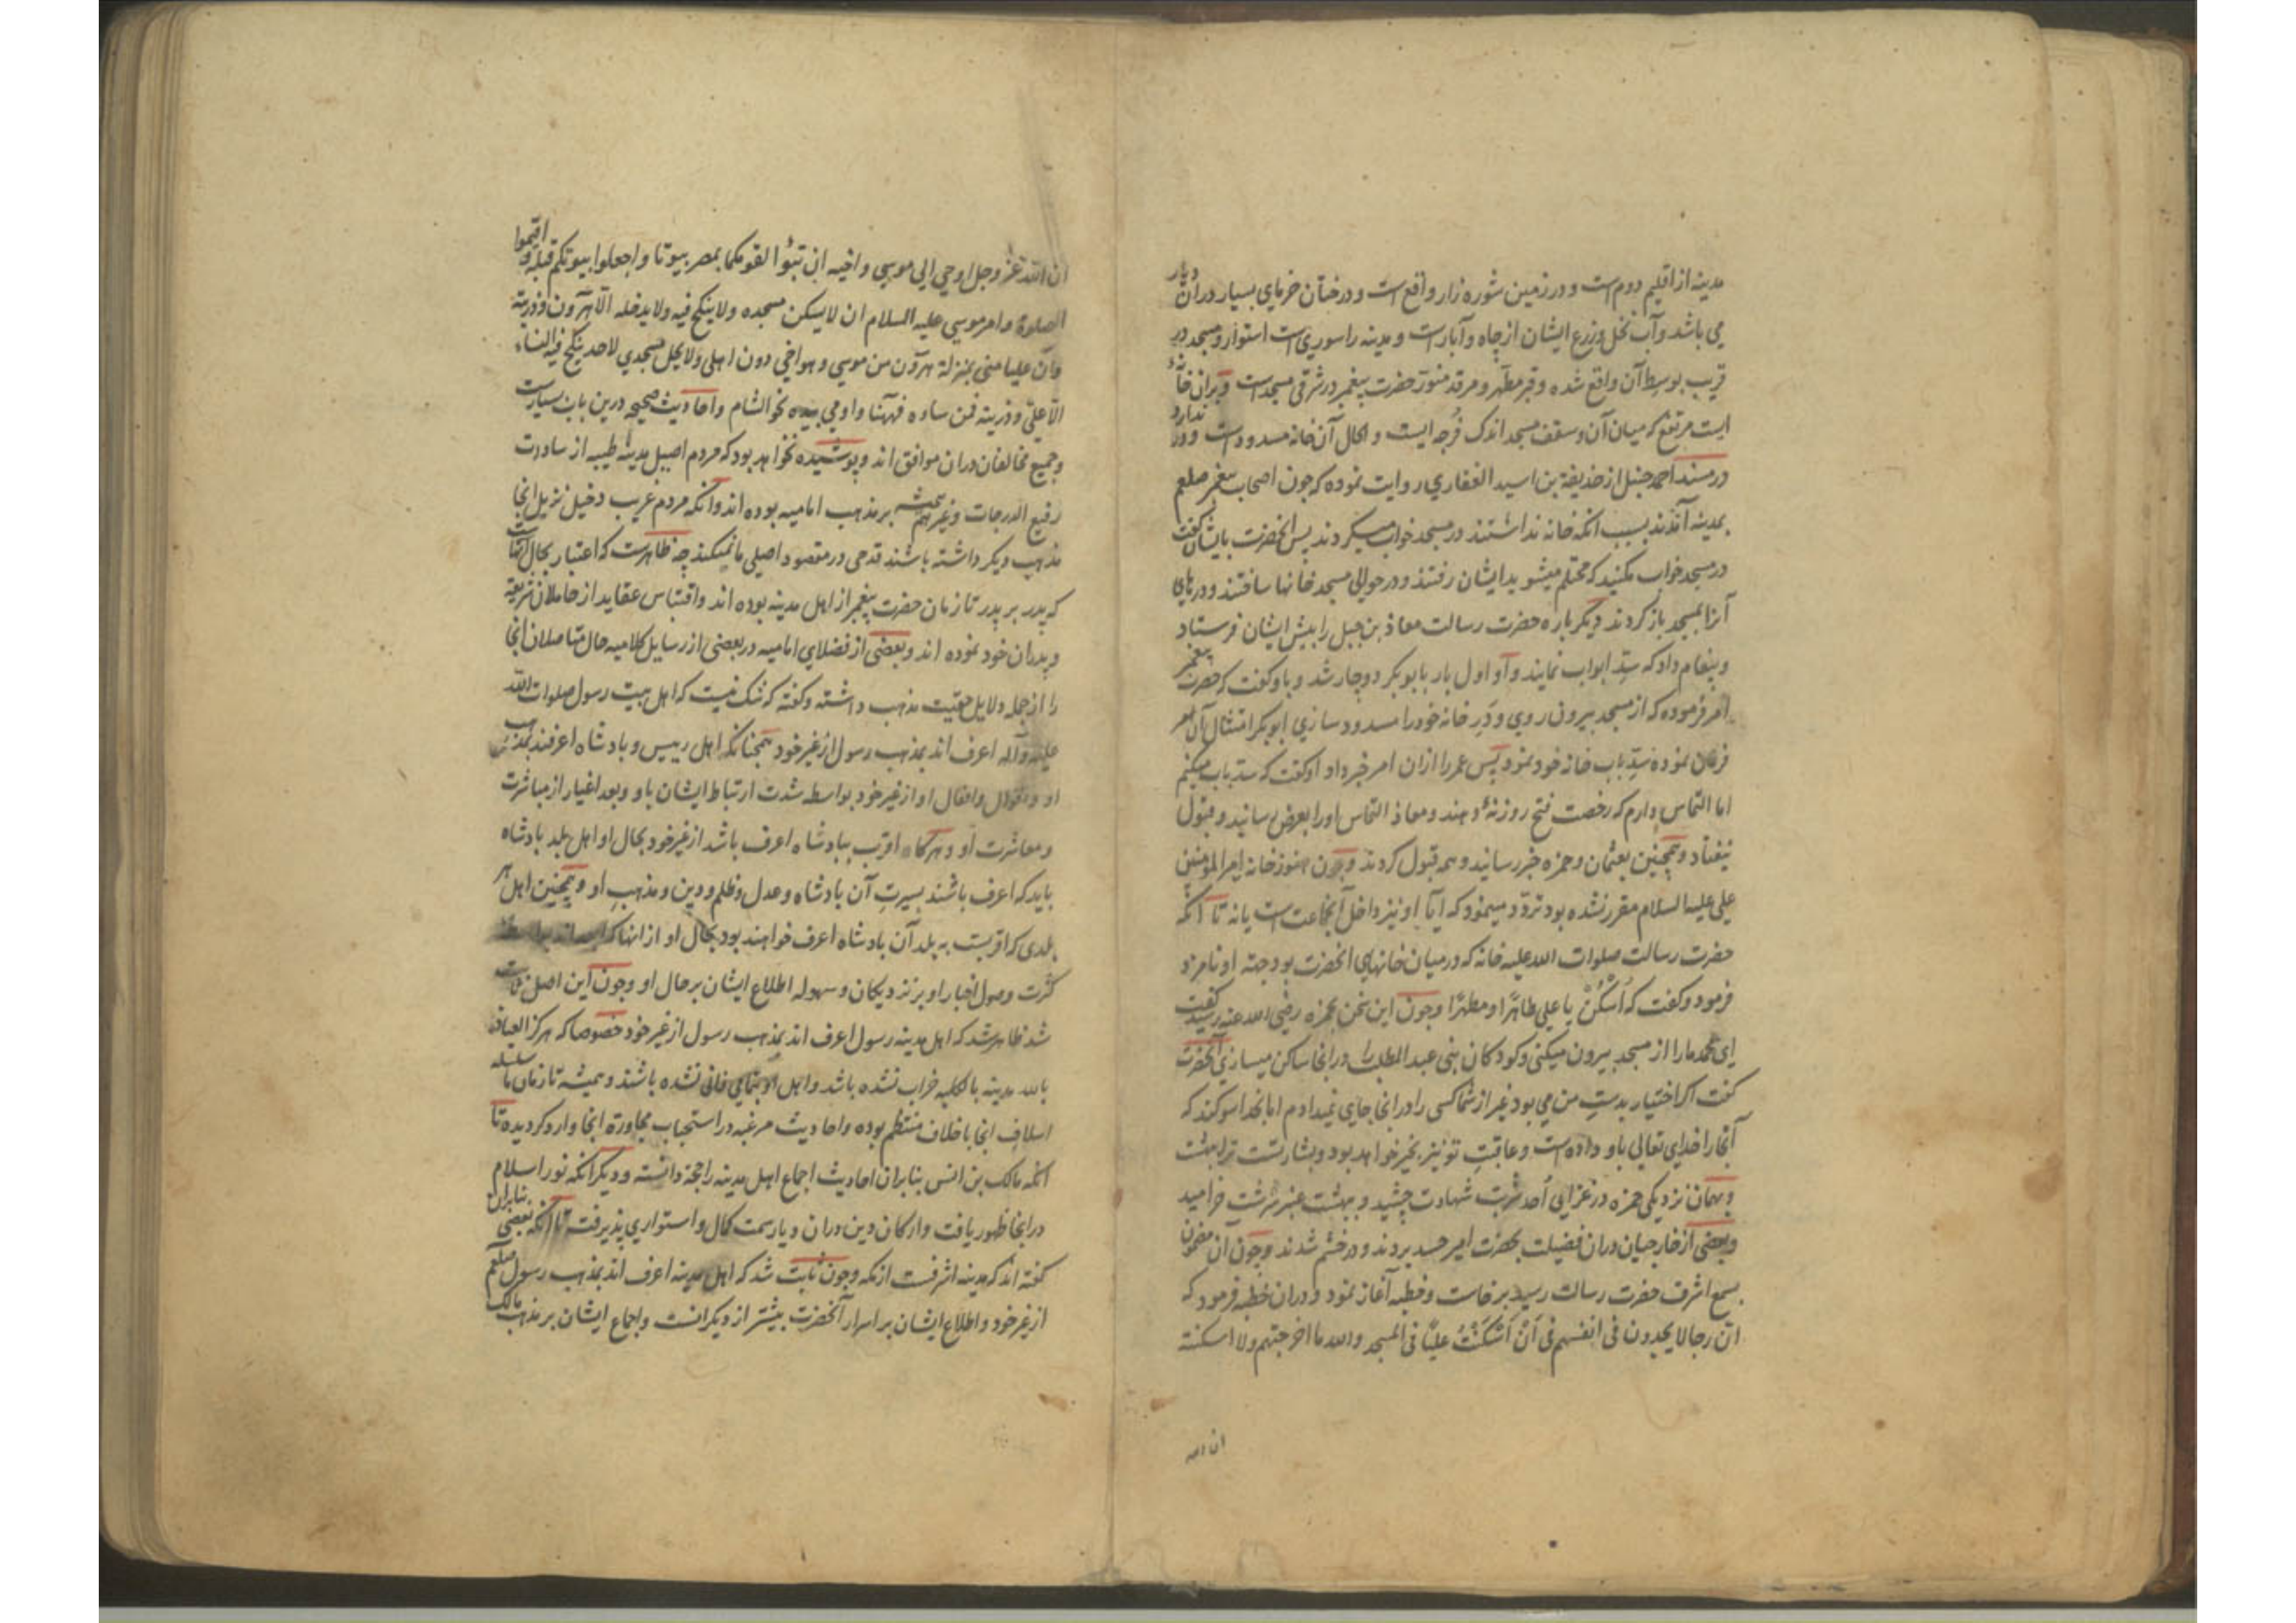 مدینه از اقلیم دوم است و در زمین شوره زار واقع است و درختان خرمای بسیار دران دیار
می باشد و آب نخل و زرع ایشان از چاه و آبار است و مدینه را سوری است استوار و مسجد در
قریب بوسط آن واقع شده و قبر مطهر و مرقد منور حضرت پیغمبر در شرقی مسجد است و بران خانهٔ
ایست مرتفع که میان آن و سقف مسجد اندک فُرجه ایست و الحال آن خانه مسدود است و در ندارد
در مسند احمد حنبل از حذیفة بن اسید الغفاری روایت نموده که چون اصحاب پیغمبر صلعم
بمدینه آمدند بسبب انکه خانه نداشتند در مسجد خواب میکردند پس انحضرت بایشان گفت
در مسجد خواب مکنید که محتلم میشوید ایشان رفتند و در حوالی مسجد خانها ساختند و درهای
آنرا بمسجد باز کردند دیگر باره حضرت رسالت معاذ بن جبل را پیش ایشان فرستاد
و پیغام داد که سدّ ابواب نمایند و او اول بار بابو بکر دوچار شد و باو گفت که حضرت پیغمبر
امر فرموده که از مسجد بیرون روی و دَرِ خانه خود را مسدود سازی ابو بکر امتثال آن
فرمان نموده سدّ باب خانه خود نمود پس عمر را ازان امر خبر داد او گفت که سدّ باب میکنم
اما التماس دارم که رخصت فتح روزنهٔ دهند و معاذ التماس او را بعرض رسانید و قبول
نیفتاد و همچنین بعثمان و حمزه خبر رسانید و همه قبول کردند و چون هنوز خانه امیر المؤمنین
علی علیه السلام مقرر نشده بود تردّد مینمود که آیا او نیز داخل آنجماعت است یا نه تا انکه
حضرت رسالت صلوات الله علیه خانه که در میان خانهای انحضرت بود جهة او نامزد
فرمود و گفت که اُسْکُنْ یا علی طاهرًا و مطهرًا و چون این سخن بحمزه رضی الله عنه رسید گفت
ای محمد ما را از مسجد بیرون میکنی و کودکان بنی عبد المطلب را در انجا ساکن میسازی آنحضرت
گفت اگر اختیار بدستِ من می بود غیر از شما کسی را در انجا جای نمیدادم اما بخدا سوکند که
آنجا را خدای تعالی باو داده است و عاقبت تو نیز بخیر خواهد بود و بشارتست ترا بهشت
و بهمان نزدیکی حمزه در غزای اُحد شربت شهادت چشید و ببهشت عنبر سرشت خرامید
و بعضی از خارجیان دران فضیلت بحضرت امیر حسد بردند و در خشم شدند و چون آن مضمون
بسمع اشرف حضرت رسالت رسید برخاست و خطبه آغاز نمود و دران خطبه فرمود که
انّ رجالا یجدون فی انفسهم فی اَنْ اَسْکَنْتُ علیًّا فی المسجد والله ما اخرجتهم ولا اسکنته
ان الله
ان الله عز وجل اوحی الی موسی و اخیه ان تبوّٰا لقومکما بمصر بیوتا و اجعلوا بیوتکم قبلة و اقیموا
الصلوة و امر موسی علیه السلام ان لا یسکن مسجده ولا ینکح فیه ولا یدخله الّا هرون و ذریته
وانّ علیا منی بمنزلة هرون من موسی و هو اخی دون اهلی ولا یحل مسجدی لاحد ینکح فیه النساء
الّا علیّ و ذریته فمن ساءه فههنا و اومی بیده نحو الشام و احادیث صحیحه درین باب بسیارست
و جمیع مخالفان دران موافق اند و پوشیده نخواهد بود که مردم اصیل مدینهٔ طیبه از سادات
رفیع الدرجات و غیرهم همیشه بر مذهب امامیه بوده اند و آنکه مردم غریب دخیل نزیل انجا
مذهب دیگر داشته باشند قدحی در مقصود اصلی ما نمیکند چه ظاهرست که اعتبار بحال آنهاست
که پدر بر پدر تا زمان حضرت پیغمبر از اهل مدینه بوده اند و اقتباس عقاید از حاملان شریعة
و پدران خود نموده اند و بعضی از فضلای امامیه در بعضی از رسایل کلامیه حال متاصلان انجا
را از جمله دلایل حقیت مذهب داشته و گفته که شک نیست که اهل بیت رسول صلوات الله
علیه و آله اعرف اند بمذهب رسول از غیر خود همچنانکه اهل رییس و پادشاه اعرفند بمذهب
او و اقوال و افعال او از غیر خود بواسطه شدت ارتباط ایشان باو و بعد اغیار از مباشرت
و معاشرت او و هرگاه اقرب بپادشاه اعرف باشد از غیر خود بحال او اهل بلد پادشاه
باید که اعرف باشند بسیرتِ آن پادشاه و عدل و ظلم و دین و مذهبِ او و همچنین اهل هر
بلدی که اقربست به بلد آن پادشاه اعرف خواهند بود بحال او از انها که
کثرت وصول اخبار او بر نزدیکان و سهوله اطلاع ایشان بر حال او و چون این اصل ثابت
شد ظاهر شد که اهل مدینه رسول اعرف اند بمذهب رسول از غیر خود خصوصا که هرگز العیاذ
بالله مدینه بالکلیه خراب نشده باشد و اهل او بتمامی فانی نشده باشند و همیشه تا زمان ما سلسله
اسلافِ انجا با خلاف منتظم بوده و احادیث مرغبه در استحباب مجاورة انجا وارد کردیده تا
انکه مالک بن انس بنا بران احادیث اجماع اهل مدینه را حجة دانسته و دیگر انکه نور اسلام
در انجا ظهور یافت و ارکان دین دران دیار سمت کمال و استواری پذیرفت تا انکه بعضی بنابران
گفته اند که مدینه اشرفست از مکه و چون ثابت شد که اهل مدینه اعرف اند بمذهب رسول صلعم
از غیر خود و اطلاع ایشان بر اسرار آنحضرت بیشتر از دیگرانست و اجماع ایشان بر مذهب مالک